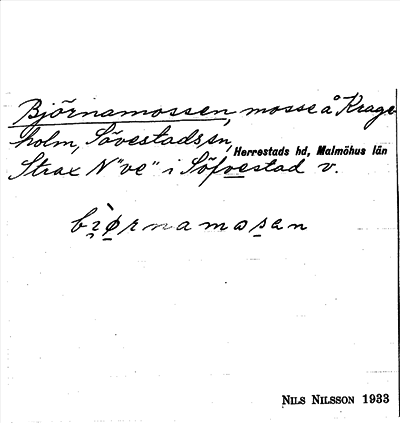 Björnamossen, mosse å Krage-
holm, Sövestads sn,
Herrestads hd, Malmöhus län
Strax N "ve" i Söfvestad v.
bi̯ø̀rnamosen
NILS NILSSON 1933